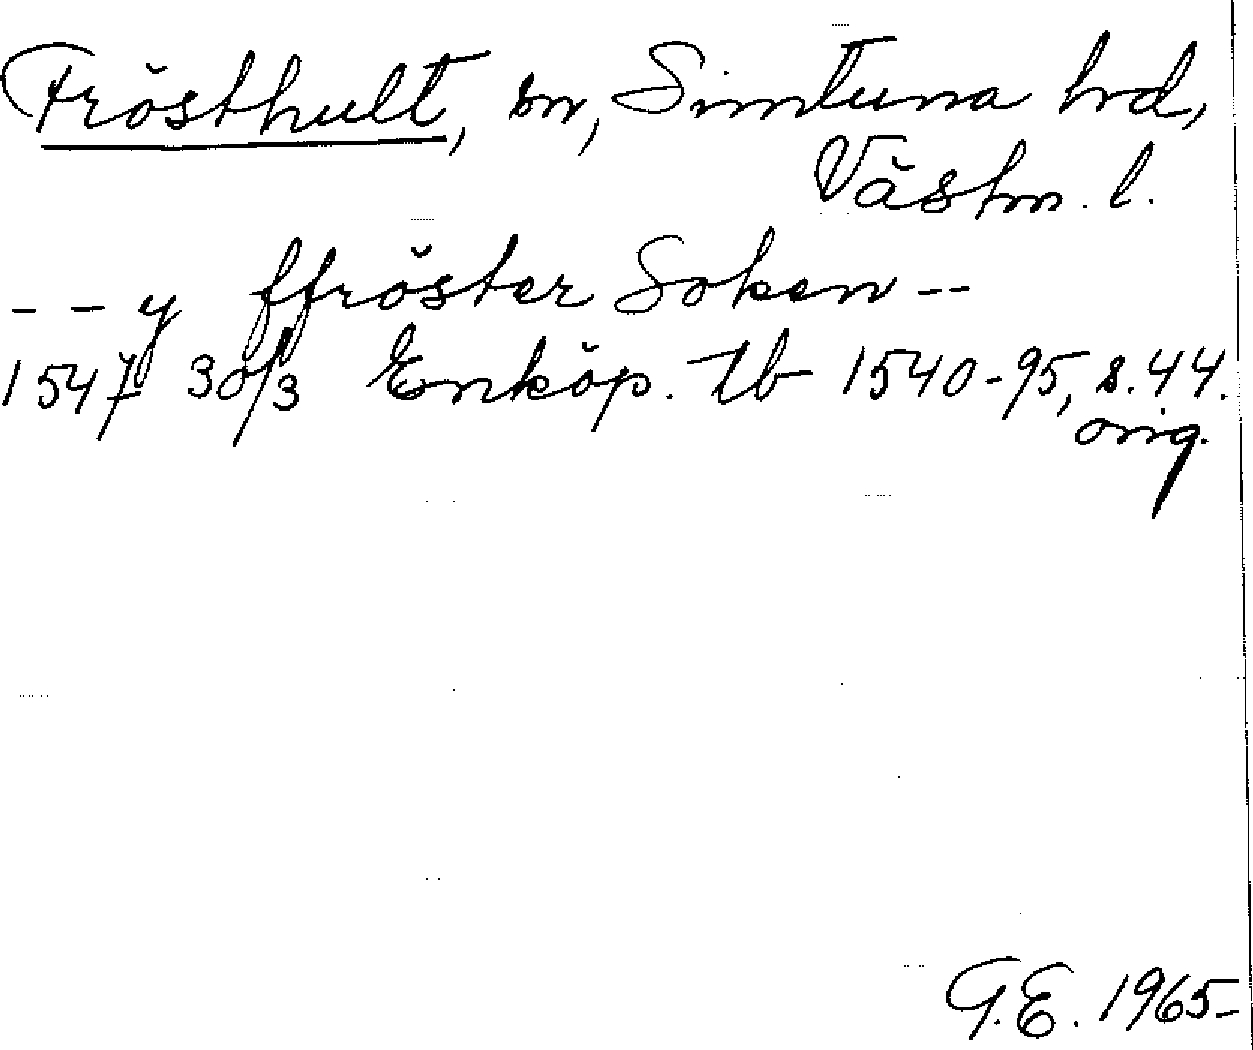 Frösthult, sn, Simtuna hrd,
Västm. l.
-- y ffröster Soken --
1547 30/3 Enköp. tb 1540-95, s. 44.
orig.
G.E. 1965